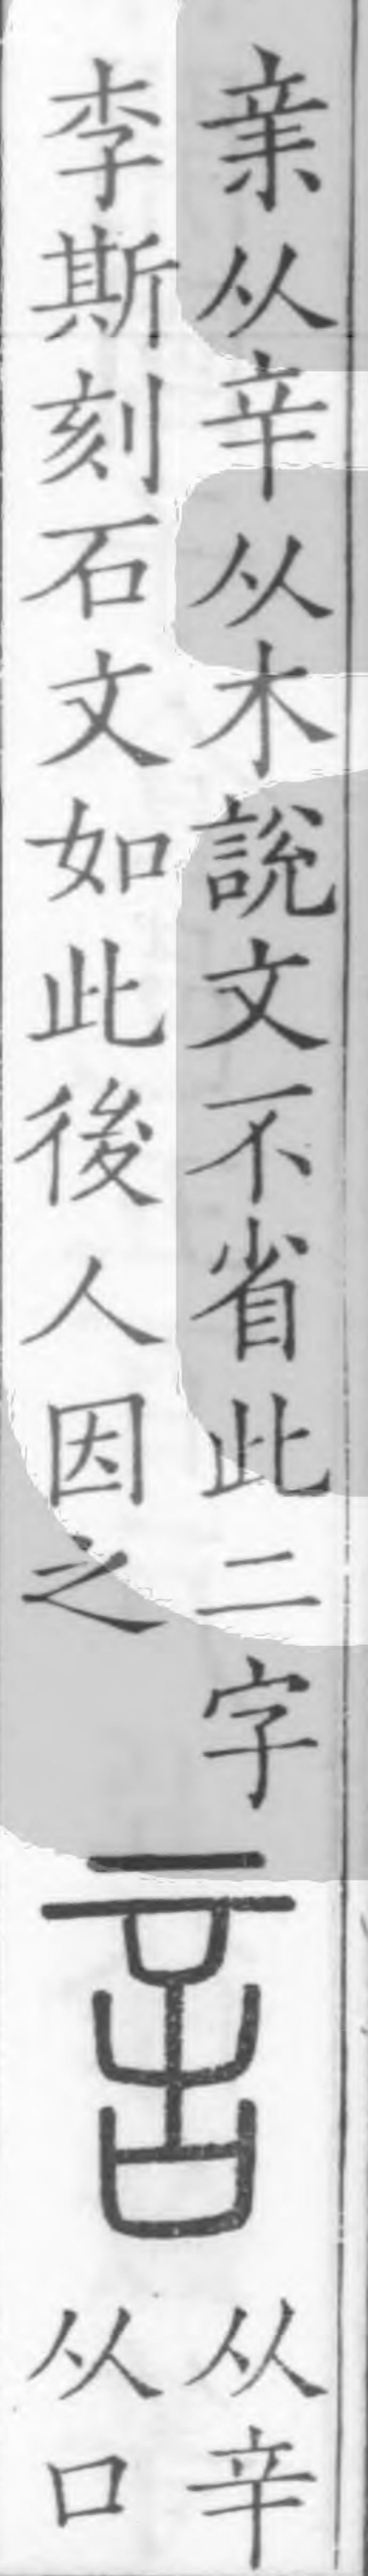 亲从辛从木說文不省此二字
李斯刻石文如此後人因之
言
从辛
从口